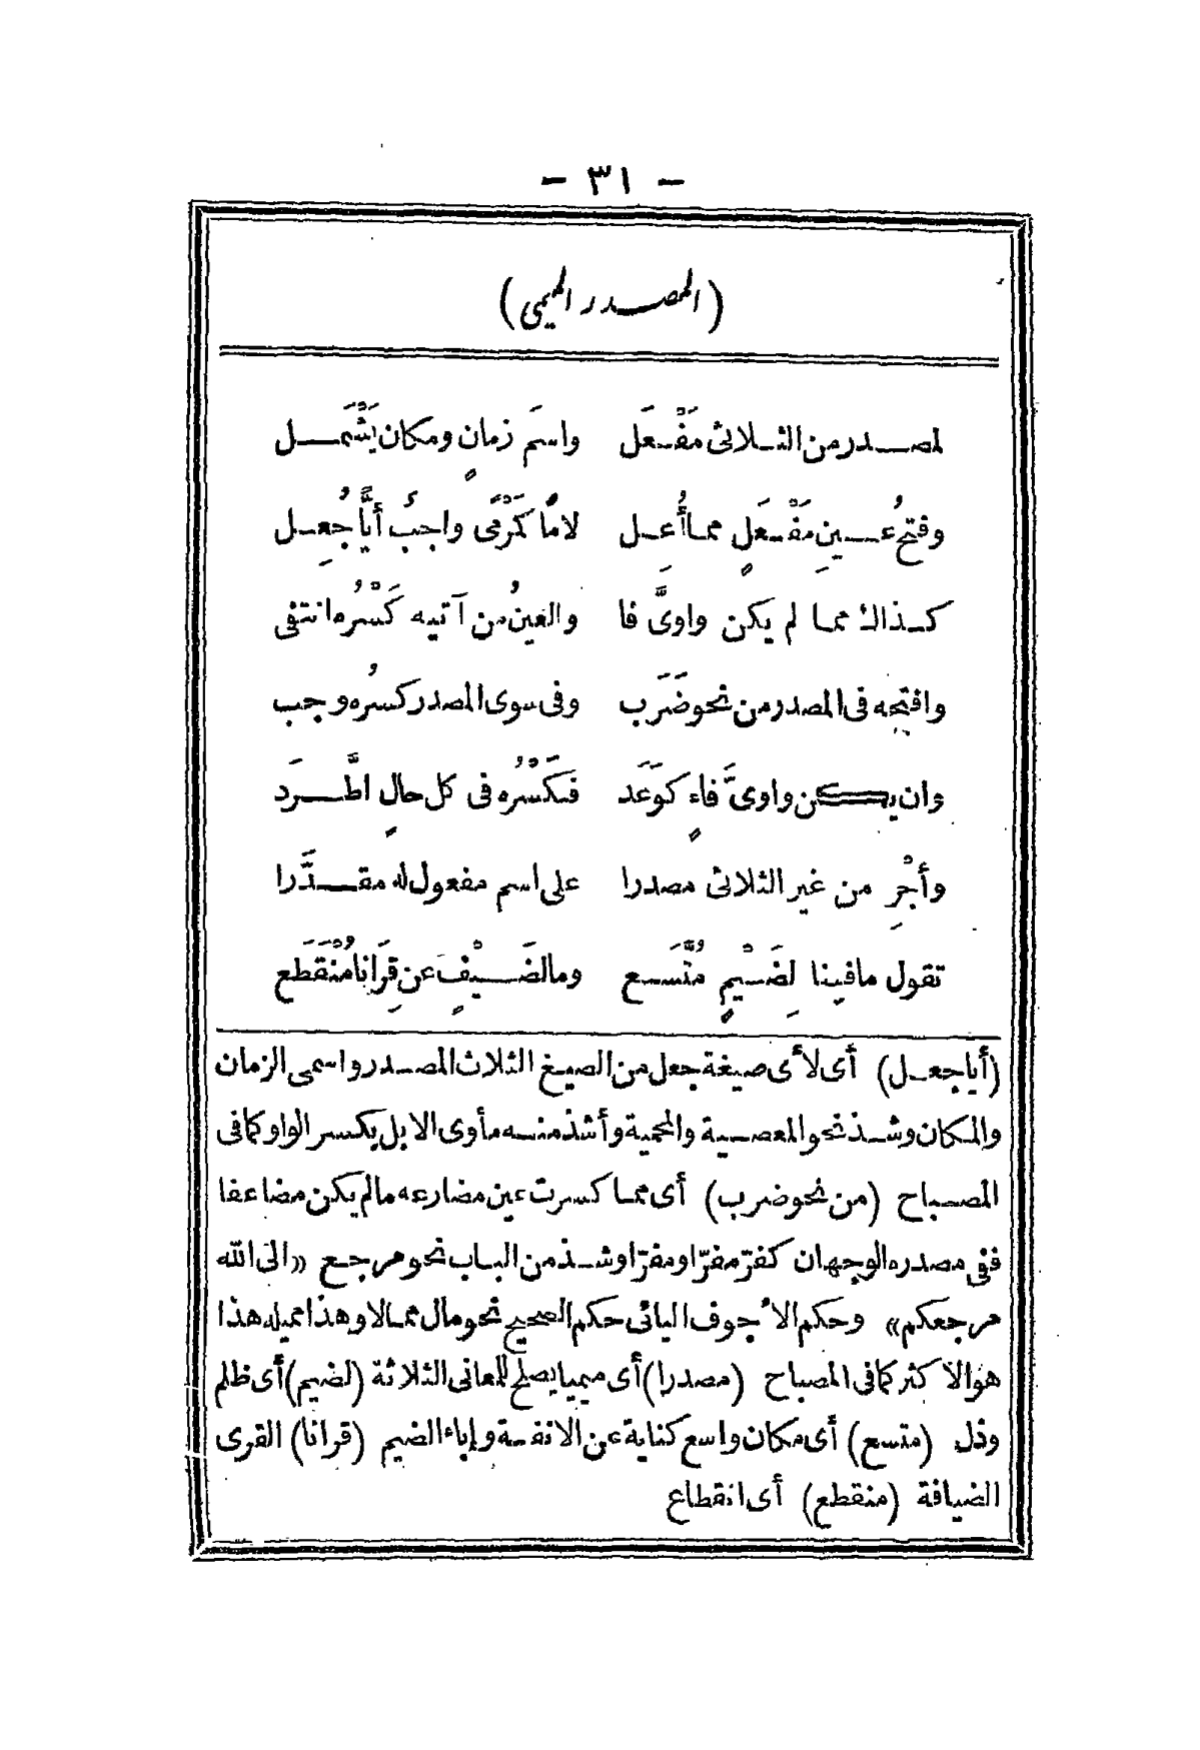 - ٣١ -
(المصدر الميمى)
لمصدر من الثلاثى مَفْعَل واسمَ زمانٍ ومكان يَشْمَل
وفتحُ عين مَفْعَلٍ مما أُعِل لامًا كَرْمَى واجبُ أيًّا جُعِل
كذاك مما لم يكن واوىَّ فا والعينُ من آتيه كَسْرُه انتفى
وافتحه فى المصدر من نحو ضَرَب وفى سوى المصدر كسرُه وجب
وان يكن واوىَّ فاءٍ كوَعَد فكَسْرُه فى كل حالٍ اطَّرَد
وأجْرِ من غير الثلاثى مصدرا على اسم مفعول له مقدَّرا
تقول ما فينا لِضَيْمٍ مُتَّسَع وما لضَيْفٍ عن قِرَانا مُنْقَطَع
(أيا جعل) أى لأى صيغة جعل من الصيغ الثلاث المصدر واسمى الزمان
والمكان وشذ نحو المعصية والمحمية وأشذ منه مأوى الابل بكسر الواو كما فى
المصباح (من نحو ضرب) أى مما كسرت عين مضارعه ما لم يكن مضاعفا
ففى مصدره الوجهان كفرّ مفرّا ومفرّا وشذ من الباب نحو مرجع «الى الله
مرجعكم» وحكم الأجوف اليائى حكم الصحيح نحو مال ممالا وهذا مميله هذا
هو الاكثر كما فى المصباح (مصدرا) أى ميميا يصلح للمعانى الثلاثة (لضيم) أى ظلم
وذل (متسع) أى مكان واسع كناية عن الانفسة وإباء الضيم (قرانا) القرى
الضيافة (منقطع) أى انقطاع